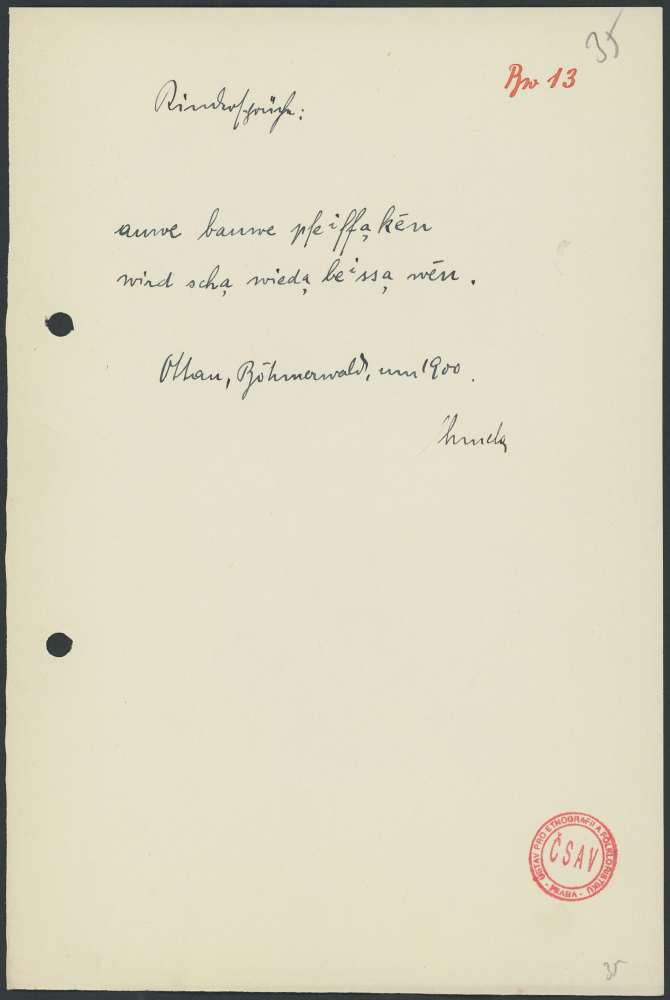 35
Bw 13
Kindersprüche:
auwe bauwe pfeiffą kēn
wird schą wiedą beissą wēn.
Ottau, Böhmerwald, um 1900.
ÚSTAV PRO ETNOGRAFII A FOLKLORISTIKU · PRAHA ·
ČSAV
35